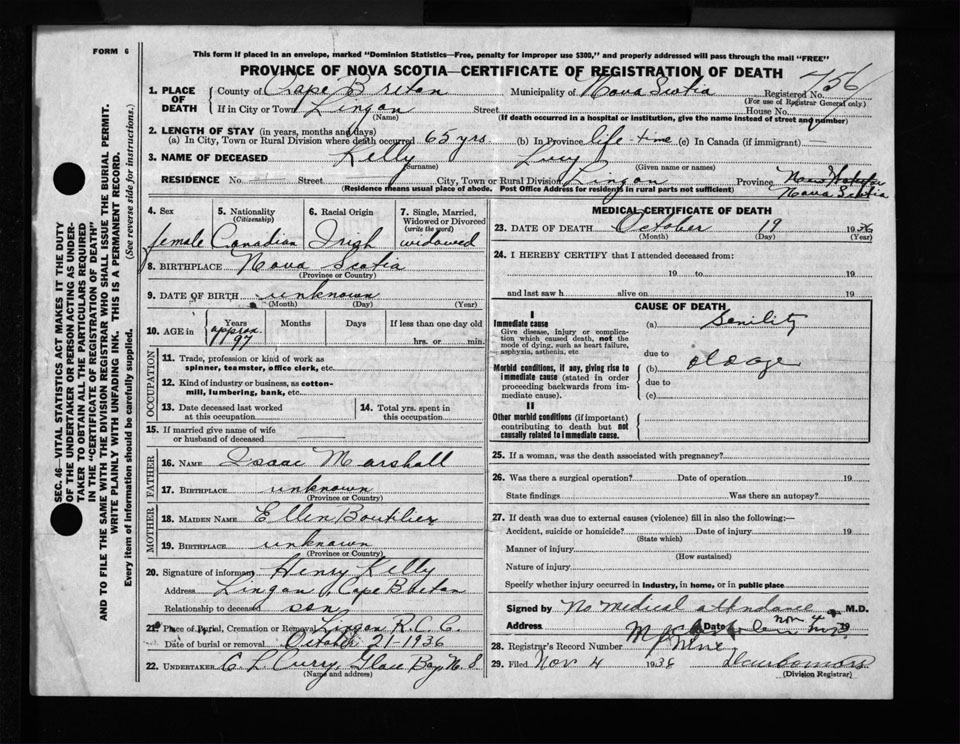 FORM 6
This form if placed in an envelope, marked "Dominion Statistics—Free, penalty for improper use $300," and properly addressed will pass through the mail "FREE"
PROVINCE OF NOVA SCOTIA—CERTIFICATE OF REGISTRATION OF DEATH
756
1. PLACE OF DEATH
County of Cape Breton Municipality of Nova Scotia Registered No.
(For use of Registrar General only)
If in City or Town Lingan Street House No.
(Name) (If death occurred in a hospital or institution, give the name instead of street and number)
2. LENGTH OF STAY (in years, months and days)
(a) In City, Town or Rural Division where death occurred 65 yrs (b) In Province life-time (c) In Canada (if immigrant) —
3. NAME OF DECEASED Kelly Lucy
Surname (Given name or names)
RESIDENCE No. Street City, Town or Rural Division Lingan Province Nova Scotia
(Residence means usual place of abode. Post Office Address for residents in rural parts not sufficient)
4. Sex
female
5. Nationality
(Citizenship)
Canadian
6. Racial Origin
Irish
7. Single, Married, Widowed or Divorced
(write the word)
widowed
8. BIRTHPLACE Nova Scotia
(Province or Country)
9. DATE OF BIRTH unknown
(Month) (Day) (Year)
10. AGE in
Years Months Days If less than one day old
approx. 97 hrs. or min.
OCCUPATION
11. Trade, profession or kind of work as
spinner, teamster, office clerk, etc.
12. Kind of industry or business, as cotton-
mill, lumbering, bank, etc.
13. Date deceased last worked
at this occupation
14. Total yrs. spent in
this occupation
15. If married give name of wife
or husband of deceased
FATHER
16. NAME Isaac Marshall
17. BIRTHPLACE unknown
(Province or Country)
MOTHER
18. MAIDEN NAME Ellen Boutilier
19. BIRTHPLACE unknown
(Province or Country)
20. Signature of informant Henry Kelly
Address Lingan, Cape Breton
Relationship to deceased son
21. Place of Burial, Cremation or Removal Lingan R.C.C.
Date of burial or removal October 21-1936
22. UNDERTAKER C. L. Curry, Glace Bay N.S
(Name and address)
MEDICAL CERTIFICATE OF DEATH
23. DATE OF DEATH October 19 1936
(Month) (Day) (Year)
24. I HEREBY CERTIFY that I attended deceased from:
19 to 19
and last saw h alive on 19
CAUSE OF DEATH
I
Immediate cause
Give disease, injury or complica-
tion which caused death, not the
mode of dying, such as heart failure,
asphyxia, asthenia, etc
(a) Senility
due to
Morbid conditions, if any, giving rise to
immediate cause (stated in order
proceeding backwards from im-
mediate cause).
(b) old age
due to
(c)
II
Other morbid conditions (if important)
contributing to death but not
causally related to immediate cause.
25. If a woman, was the death associated with pregnancy?
26. Was there a surgical operation? Date of operation 19
State findings Was there an autopsy?
27. If death was due to external causes (violence) fill in also the following:—
Accident, suicide or homicide? Date of injury 19
(State which)
Manner of injury
(How sustained)
Nature of injury
Specify whether injury occurred in industry, in home, or in public place
Signed by No medical attendance M.D.
Address Date Nov 4 19
28. Registrar's Record Number Nine
29. Filed Nov 4 1936
(Division Registrar)
SEC. 46—VITAL STATISTICS ACT MAKES IT THE DUTY
OF THE UNDERTAKER OR PERSON ACTING AS UNDER-
TAKER TO OBTAIN ALL THE PARTICULARS REQUIRED
IN THE "CERTIFICATE OF REGISTRATION OF DEATH"
AND TO FILE THE SAME WITH THE DIVISION REGISTRAR WHO SHALL ISSUE THE BURIAL PERMIT.
WRITE PLAINLY WITH UNFADING INK. THIS IS A PERMANENT RECORD.
Every item of information should be carefully supplied. (See reverse side for instructions.)